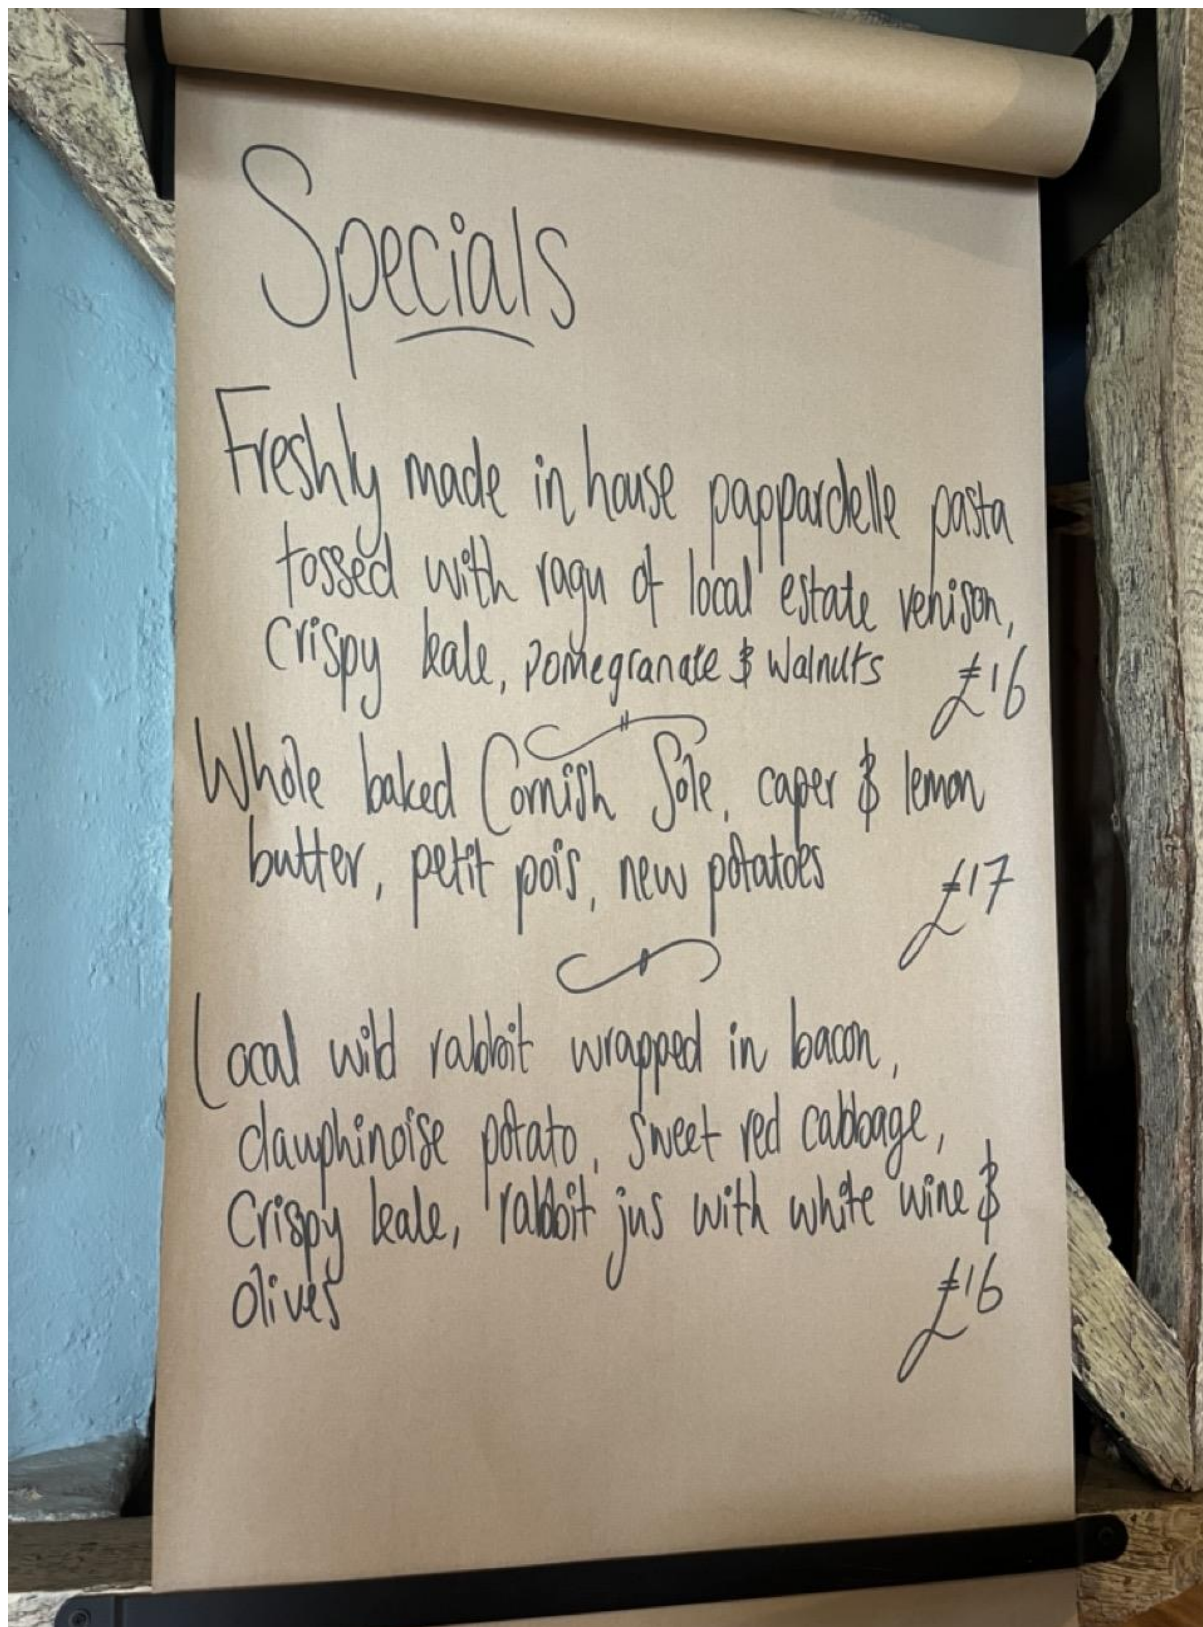 Specials
Freshly made in house pappardelle pasta
tossed with ragu of local estate venison,
crispy kale, pomegranate & walnuts £16
Whole baked Cornish Sole, caper & lemon
butter, petit pois, new potatoes
£17
Local wild rabbit wrapped in bacon,
dauphinoise potato, sweet red cabbage,
crispy kale, rabbit jus with white wine &
olives
£16